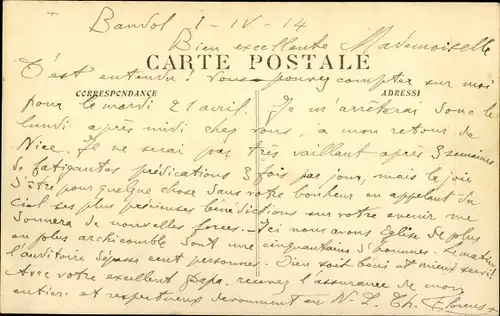 Bandol 1-IV-14
Bien excellente Mademoiselle
CARTE POSTALE
C'est entendu! Vous pouvez compter sur moi
CORRESPONDANCE ADRESSE
pour le mardi 21 avril. Je m'arrêterai donc le
lundi après midi chez vous, à mon retour de
Nice. Je ne serai pas très vaillant après 3 semaines
de fatigantes prédications 3 fois par jour, mais la joie
d'être pour quelque chose dans votre bonheur en appelant du
Ciel ses plus précieuses bénédictions sur votre avenir me
donnera de nouvelles forces. - Ici nous avons Eglise de plus
en plus archicomble dont une cinquantaine d'hommes. Le matin
l'auditoire dépasse cent personnes. Dieu soit béni et mieux servi
Avec votre excellent papa, recevez l'assurance de mon
entier et respectueux dévouement en N. S. Th.